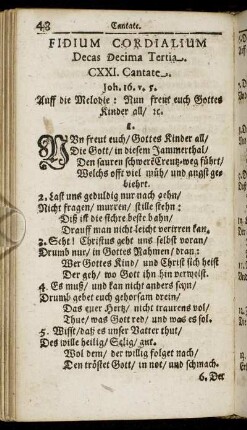 48 Cantate.
FIDIUM CORDIALIUM
Decas Decima Tertia.
CXXI. Cantate.
Joh. 16. v. 5.
Auff die Melodie: Nun freut euch Gottes
Kinder all/ ꝛc.
1.
NUn freut euch/ Gottes Kinder all/
Die Gott/ in diesem Jammerthal/
Den sauren schwerē Creutz-weg führt/
Welchs offt viel müh/ und angst ge-
biehrt.
2. Last uns geduldig nur nach gehn/
Nicht fragen/ murren/ stille stehn:
Diß ist die sichre beste bahn/
Drauff man nicht leicht verirren kan.
3. Seht! Christus geht uns selbst voran/
Drumb nur/ in Gottes Nahmen/ dran:
Wer Gottes Kind/ und Christ sich heist
Der geh/ wo Gott ihn hin verweist.
4. Es muß/ und kan nicht anders seyn/
Drumb gebet euch gehorsam drein/
Das euer Hertz/ nicht traurens vol/
Thue/ was Gott red/ und was es sol.
5. Wisst/ daß es unser Vatter thut/
Des wille heilig/ Selig/ gut.
Wol dem/ der willig folget nach/
Den tröstet Gott/ in not/ und schmach.
6. Der